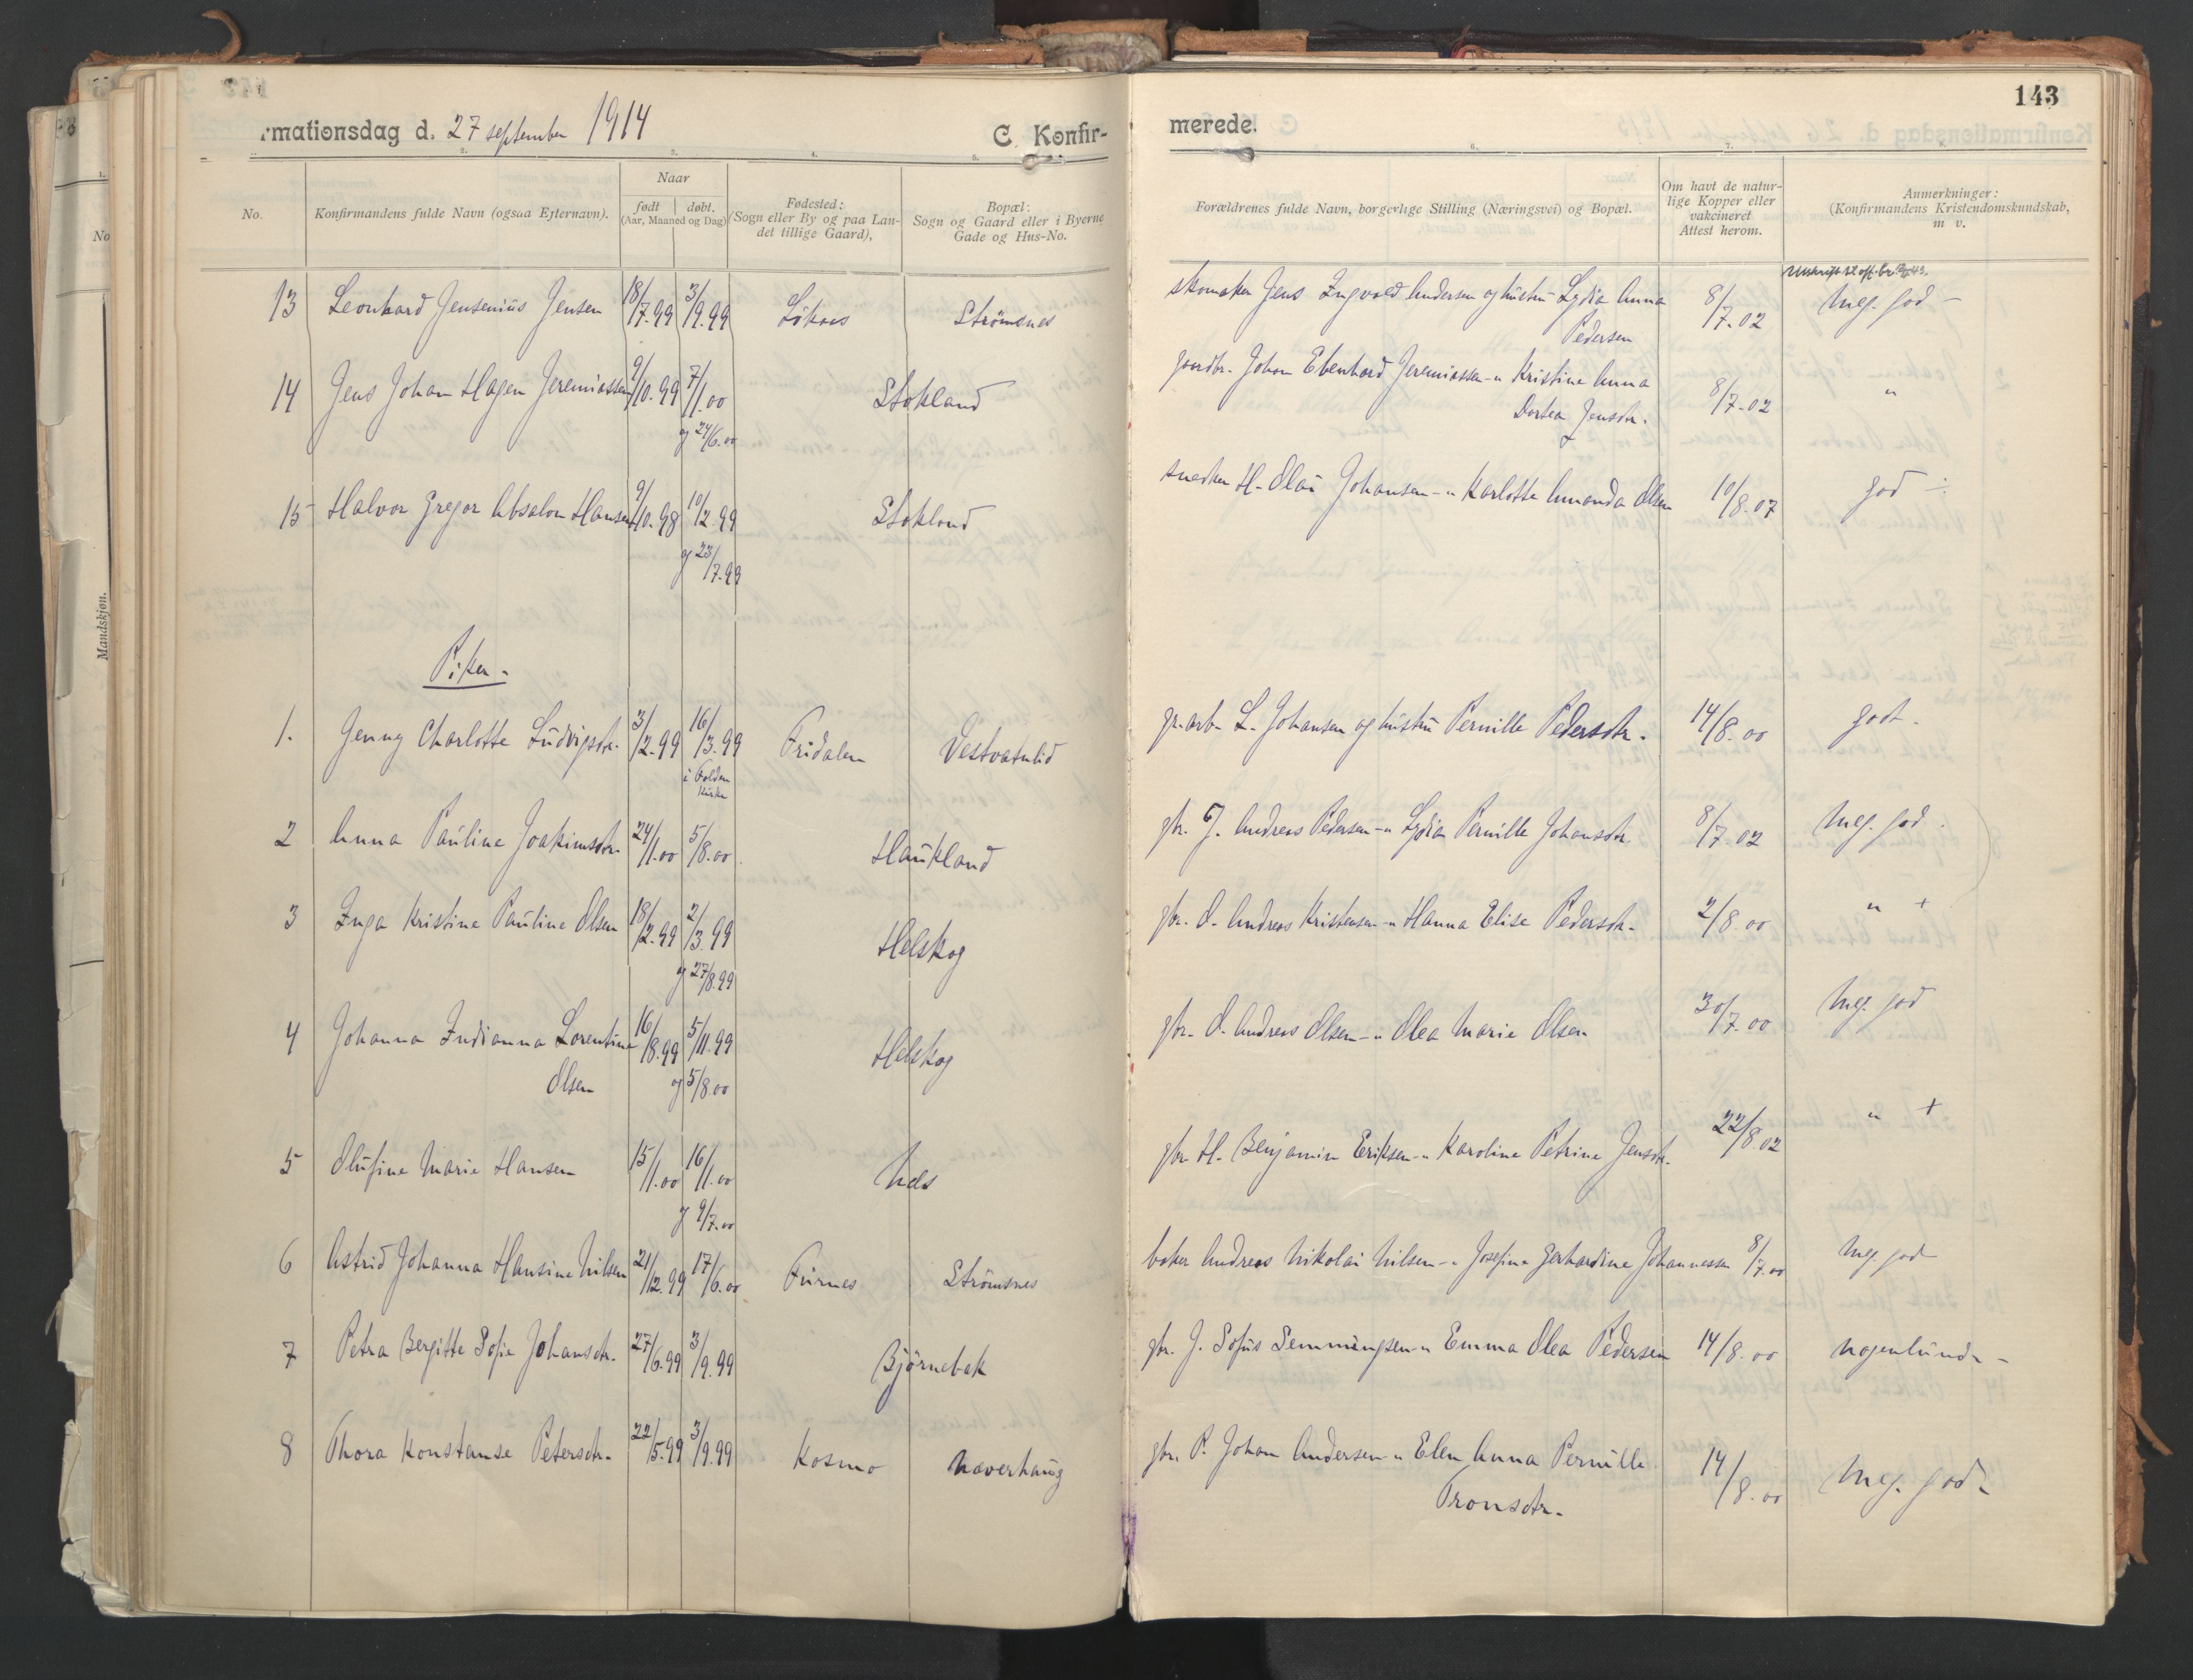 143
rmationsdag d. 27 september 1914
C. Konfir-
merede.
No.
Konfirmandens fulde Navn (ogsaa Efternavn).
Naar
født
døbt.
(Aar, Maaned og Dag)
Fødested:
(Sogn eller By og paa Lan-
det tillige Gaard),
Bopæl:
Sogn og Gaard eller i Byerne
Gade og Hus-No.
Forældrenes fulde Navn, borgerlige Stilling (Næringsvei) og Bopæl.
Om havt de natur-
lige Kopper eller
vakcineret
Attest herom.
Anmerkninger:
(Konfirmandens Kristendomskundskab,
m v.
Mandskjøn.
13 Leonhard Jensenius Jensen 18/7.99 3/9.99 Løkaas Strömsnes skomaker Jens Ingvald Andersen og hustru Lydia Anna 8/7.02 Meg. god -
Pedersen
14 Jens Johan Hagen Jeremiassen 9/10.99 7/1.00 Stokland gaardbr. Johan Ebenhard Jeremiassen -"- Kristine Anna 8/7.02 "
og 24/6.00 Dortea Jensdtr.
15 Halvor Gregor Absalon Hansen 9/10.98 10/12.99 Stokland snedker H. Olai Johansen -"- Karlotte Amanda Olsen 10/8.07 god
og 23/7.99
Piker.
1. Jenny Charlotte Ludvigsdtr. 3/2.99 16/3.99 Fridalen Vestvatnlid gr.arb. L. Johansen og hustru Pernille Pedersdtr. 14/8.00 godt.
i Folden
kirke
2 Anna Pauline Joakimsdtr. 24/1.00 5/8.00 Haukland gbr. J. Andreas Pedersen -"- Lydia Pernille Johansdtr. 8/7.02 Meg. god.
3 Inga Kristine Pauline Olsen 18/2.99 2/3.99 Helskog gbr. O. Andreas Kristensen -"- Hanna Elise Pedersdtr. 2/8.00 " +
og 27/8.99
4 Johanna Indianna Lorentine 16/8.99 5/11.99 Helskog gbr. O. Andreas Olsen -"- Olea Marie Olsen 30/7.00 Meg. god
Olsen og 5/8.00
5 Olufine Marie Hansen 15/1.00 16/1.00 Nes gbr. H. Benjamin Eriksen -"- Karoline Petrine Jensdtr. 22/8.02 " +
og 9/7.00
6 Astrid Johanna Hansine Nilsen 21/12.99 17/6.00 Furnes Strömsnes baker Andreas Nikolai Nilsen -"- Josefine Gerhardine Johannessen 8/7.00 Meg. god
7 Petra Bergitte Sofie Johansdtr. 27/6.99 3/9.99 Björnebak gbr. J. Sofus Semmingsen -"- Emma Olea Pedersen 14/8.00 nogenlunde -
8 Thora Konstanse Petersdtr. 22/5.99 3/9.99 Kosmo Naverhaug gbr. P. Johan Andersen -"- Elen Anna Pernille 14/8.00 Meg. god -
Tronsdtr.